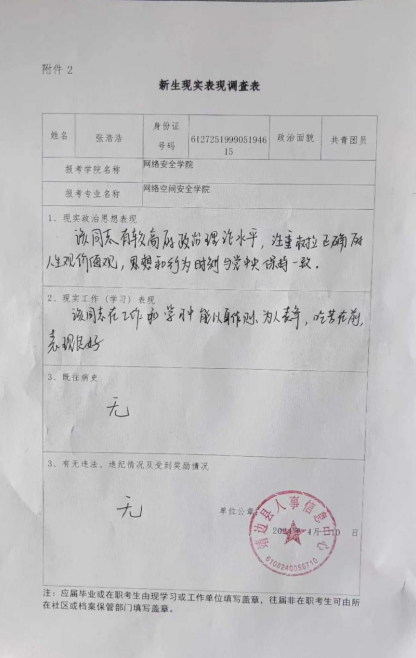 附件 2
新生现实表现调查表
姓名 张浩浩 身份证号码 612725199905194615 政治面貌 共青团员
报考学院名称 网络安全学院
报考专业名称 网络空间安全学院
1、现实政治思想表现
该同志有较高的政治理论水平，注重树立正确的
人生观价值观，思想和行为时刻与党中央保持一致.
2、现实工作（学习）表现
该同志在工作和学习中能以身作则、为人表率，吃苦在前，
表现良好
3、既往病史
无
3、有无违法、违纪情况及受到奖励情况
无
单位公章：
2024年 4月 10 日
靖边县人事信息中心
注：应届毕业或在职考生由现学习或工作单位填写盖章，往届非在职考生可由所
在社区或档案保管部门填写盖章。